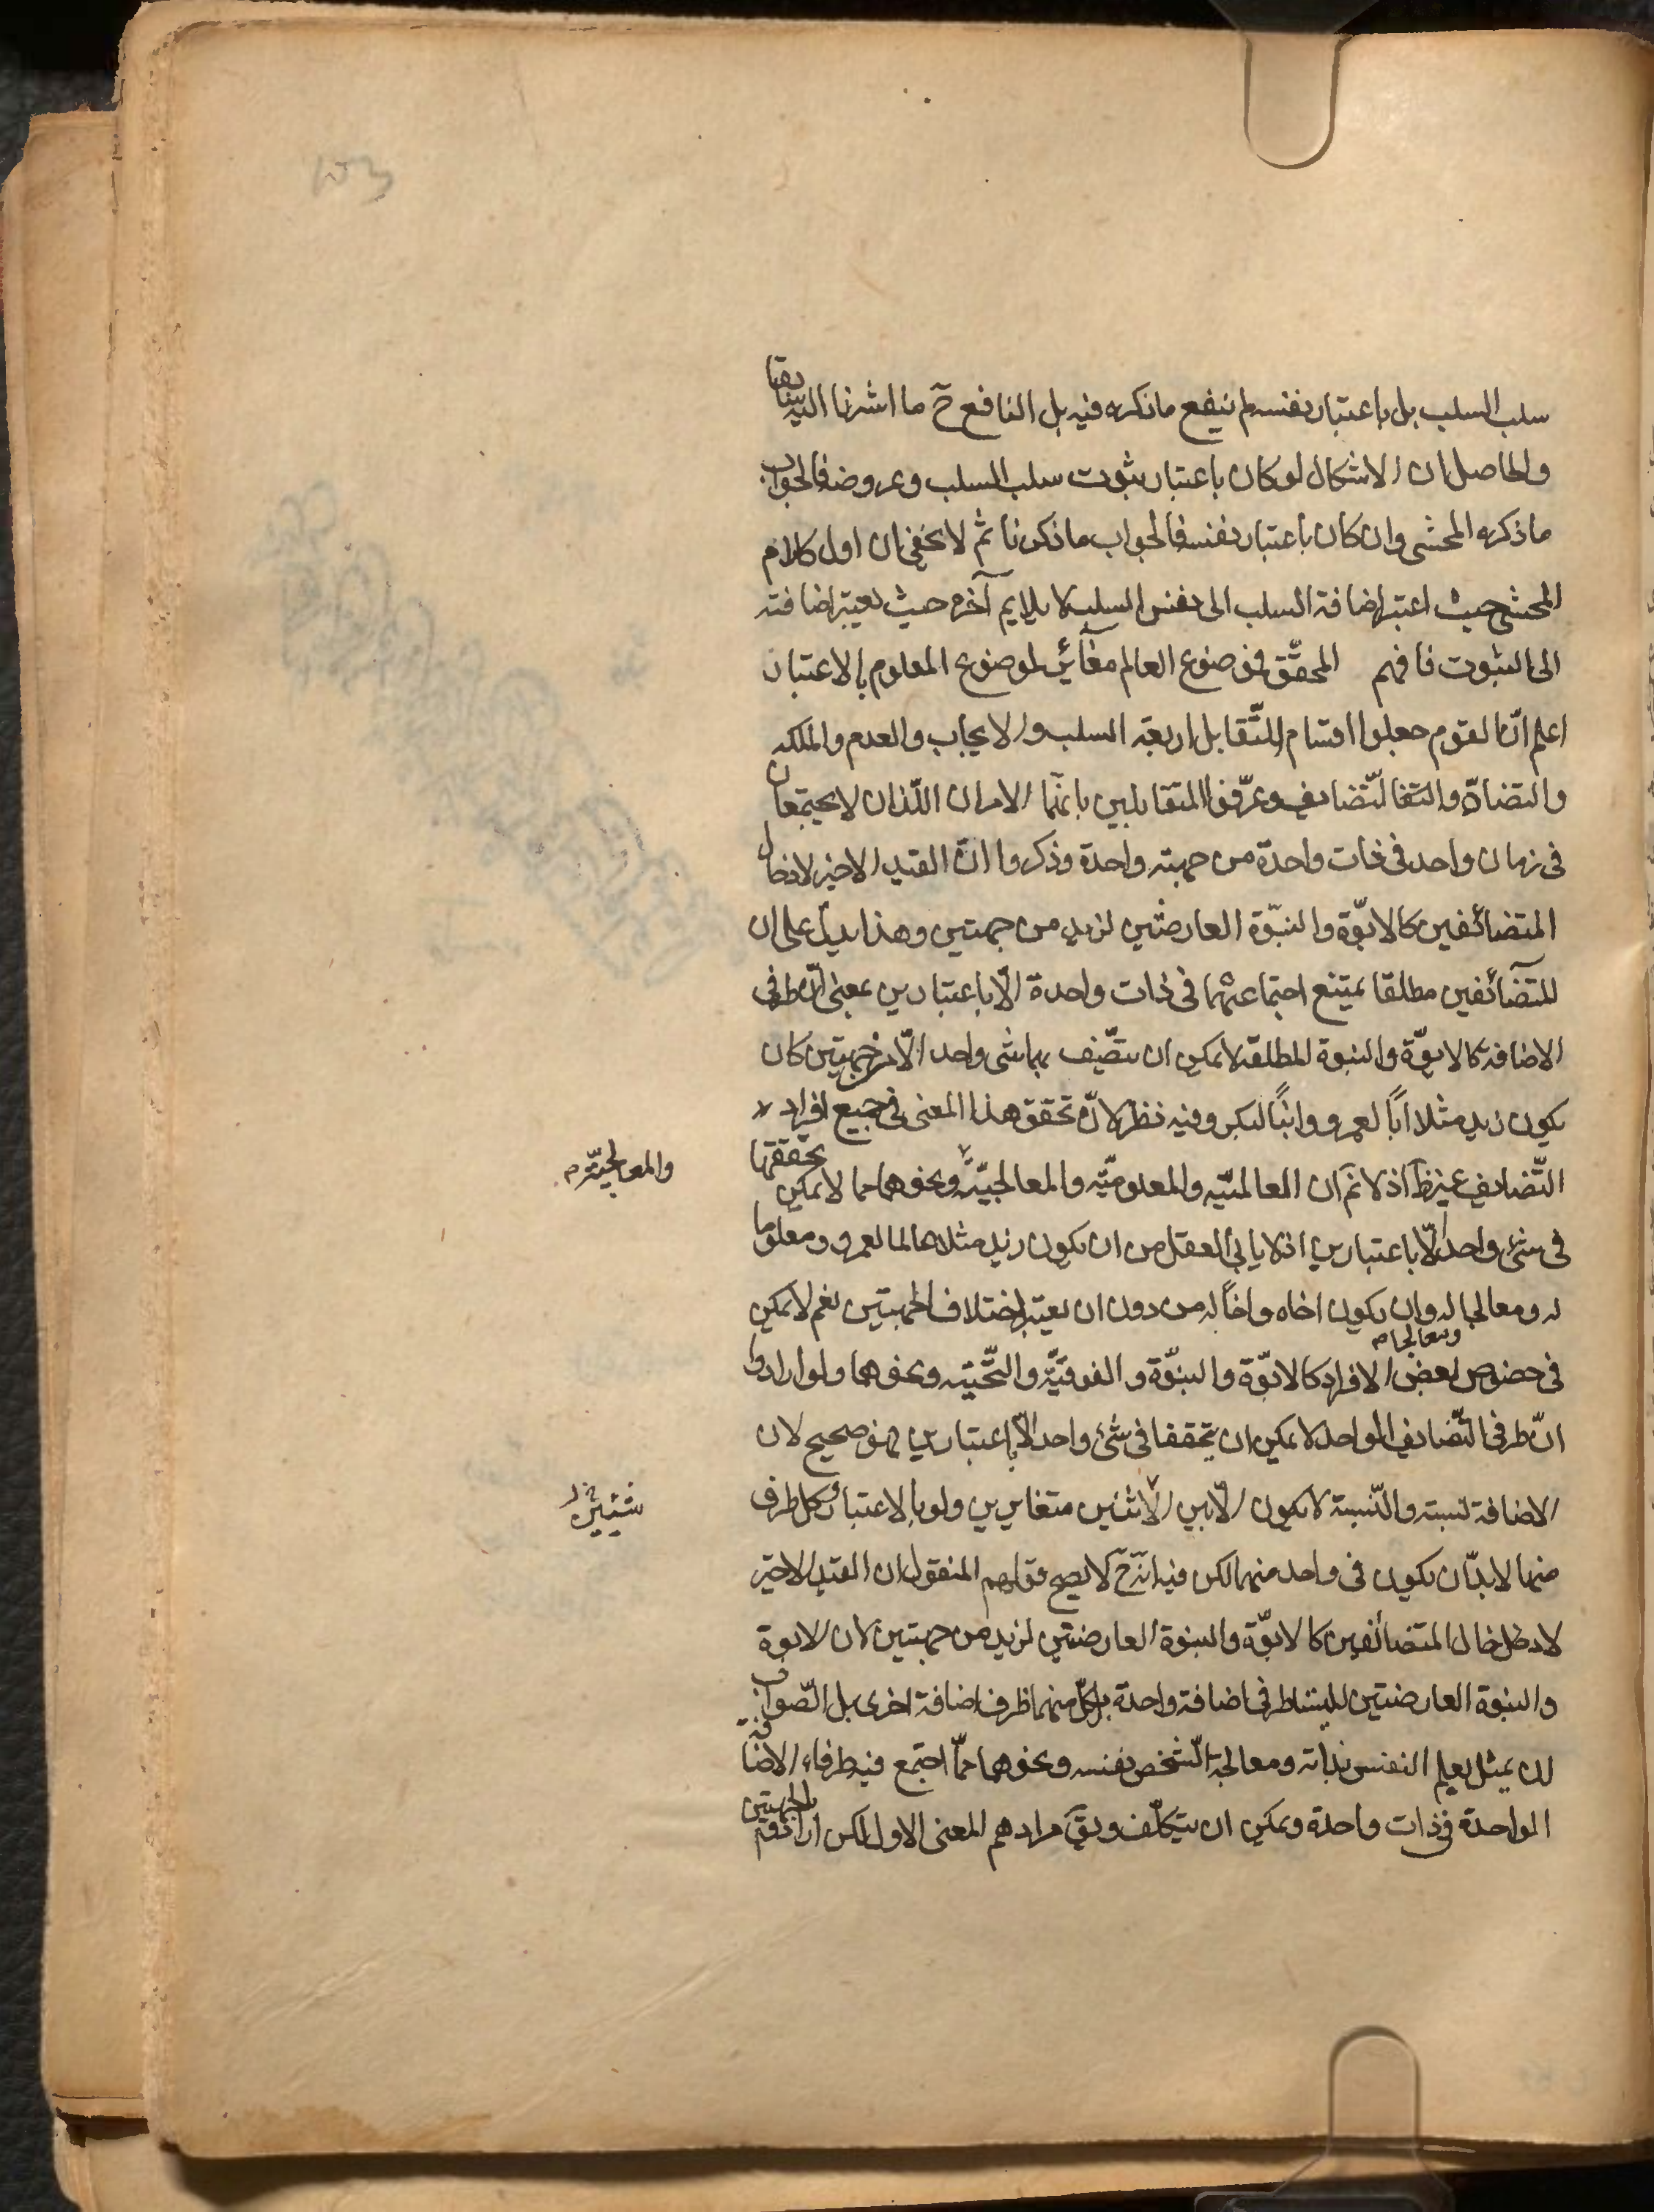 سلب السلب بل باعتبار نفسه لم ينفع ما ذكره فيه بل النافع ح ما اشرنا اليه سابقا
والحاصل ان الاشكال لو كان باعتبار ثبوت سلب السلب وعروضه فالجواب
ما ذكره المحشي وان كان باعتبار نفسه فالجواب ما ذكرنا ثم لا يخفى ان اول كلام
المحشي حيث اعتبر اضافة السلب الى نفس السلب لا يلايم آخره حيث يعتبر اضافته
الى الثبوت فافهم المحقق فموضوع العالم مغائر لموضوع المعلوم بالاعتبار
اعلم انّ القوم جعلوا اقسام التّقابل اربعة السلب والايجاب والعدم والملكه
والتضادّ والتضايف وعرّفوا المتقابلين بانّهما الامران اللّذان لا يجتمعان
فى زمان واحد فى ذات واحدة من جهة واحدة وذكروا انّ القيد الاخير لادخال
المتضائفين كالابوّة والبنوّة العارضتين لزيد من جهتين وهذا يدلّ على ان
المتضائفين مطلقا يمتنع اجتماعهما فى ذات واحدة الّا باعتبارين بمعنى انّ طرفى
الاضافة كالابوّة والبنوة المطلقة لا يمكن ان يتّصف بهما شى واحد الّا من جهتين كان
يكون زيد مثلا اباً لعمرو وابناً لبكر وفيه نظر لانّ تحقق هذا المعنى فى جميع افراد
التّضايف غير ظ اذ لا نم ان العالميّه والمعلوميّه والمعالجيّة ونحوهما مما لا يمكن تحققها
والمعالجيّة م
فى شئ واحد الّا باعتبارين اذ لا يابى العقل من ان يكون زيد مثلا عالما لعمرو ومعلوما
له ومعالجا له وان يكون اخاه واخاً له من دون ان يعتبر اختلاف الجهتين نعم لا يمكن
ومعالجا م
فى خصوص بعض الافراد كالابوّة والبنوّة والفوقيّة والتّحتيّه ونحوهما ولو ارادوا
انّ طرفى التّضايف الواحد لا يمكن ان يتحققا فى شئ واحد الّا باعتبارين فهو صحيح لان
الاضافة نسبة والنّسبة لا يكون الّا بين الاثنين متغايرين ولو بالاعتبار وكل طرف
شيئين خ ل
منها لا بدّ ان يكون فى واحد منهما لكن فيه انّه ح لا يصح قولهم المنقول ان القيد الاخير
لادخال المتضائفين كالابوّة والبنوة العارضتين لزيد من جهتين لان الابوة
والبنوة العارضتين ليستا طرفى اضافة واحدة بل كلّ منهما طرف اضافة اخرى بل الصّواب
ان يمثل بعلم النفس بذاته ومعالجة الشّخص نفسه ونحوهما ممّا اجتمع فيه طرفاء الاضافة
الواحدة فى ذات واحدة ويمكن ان يتكلّف ويق مرادهم المعنى الاول لكن بالجهتين